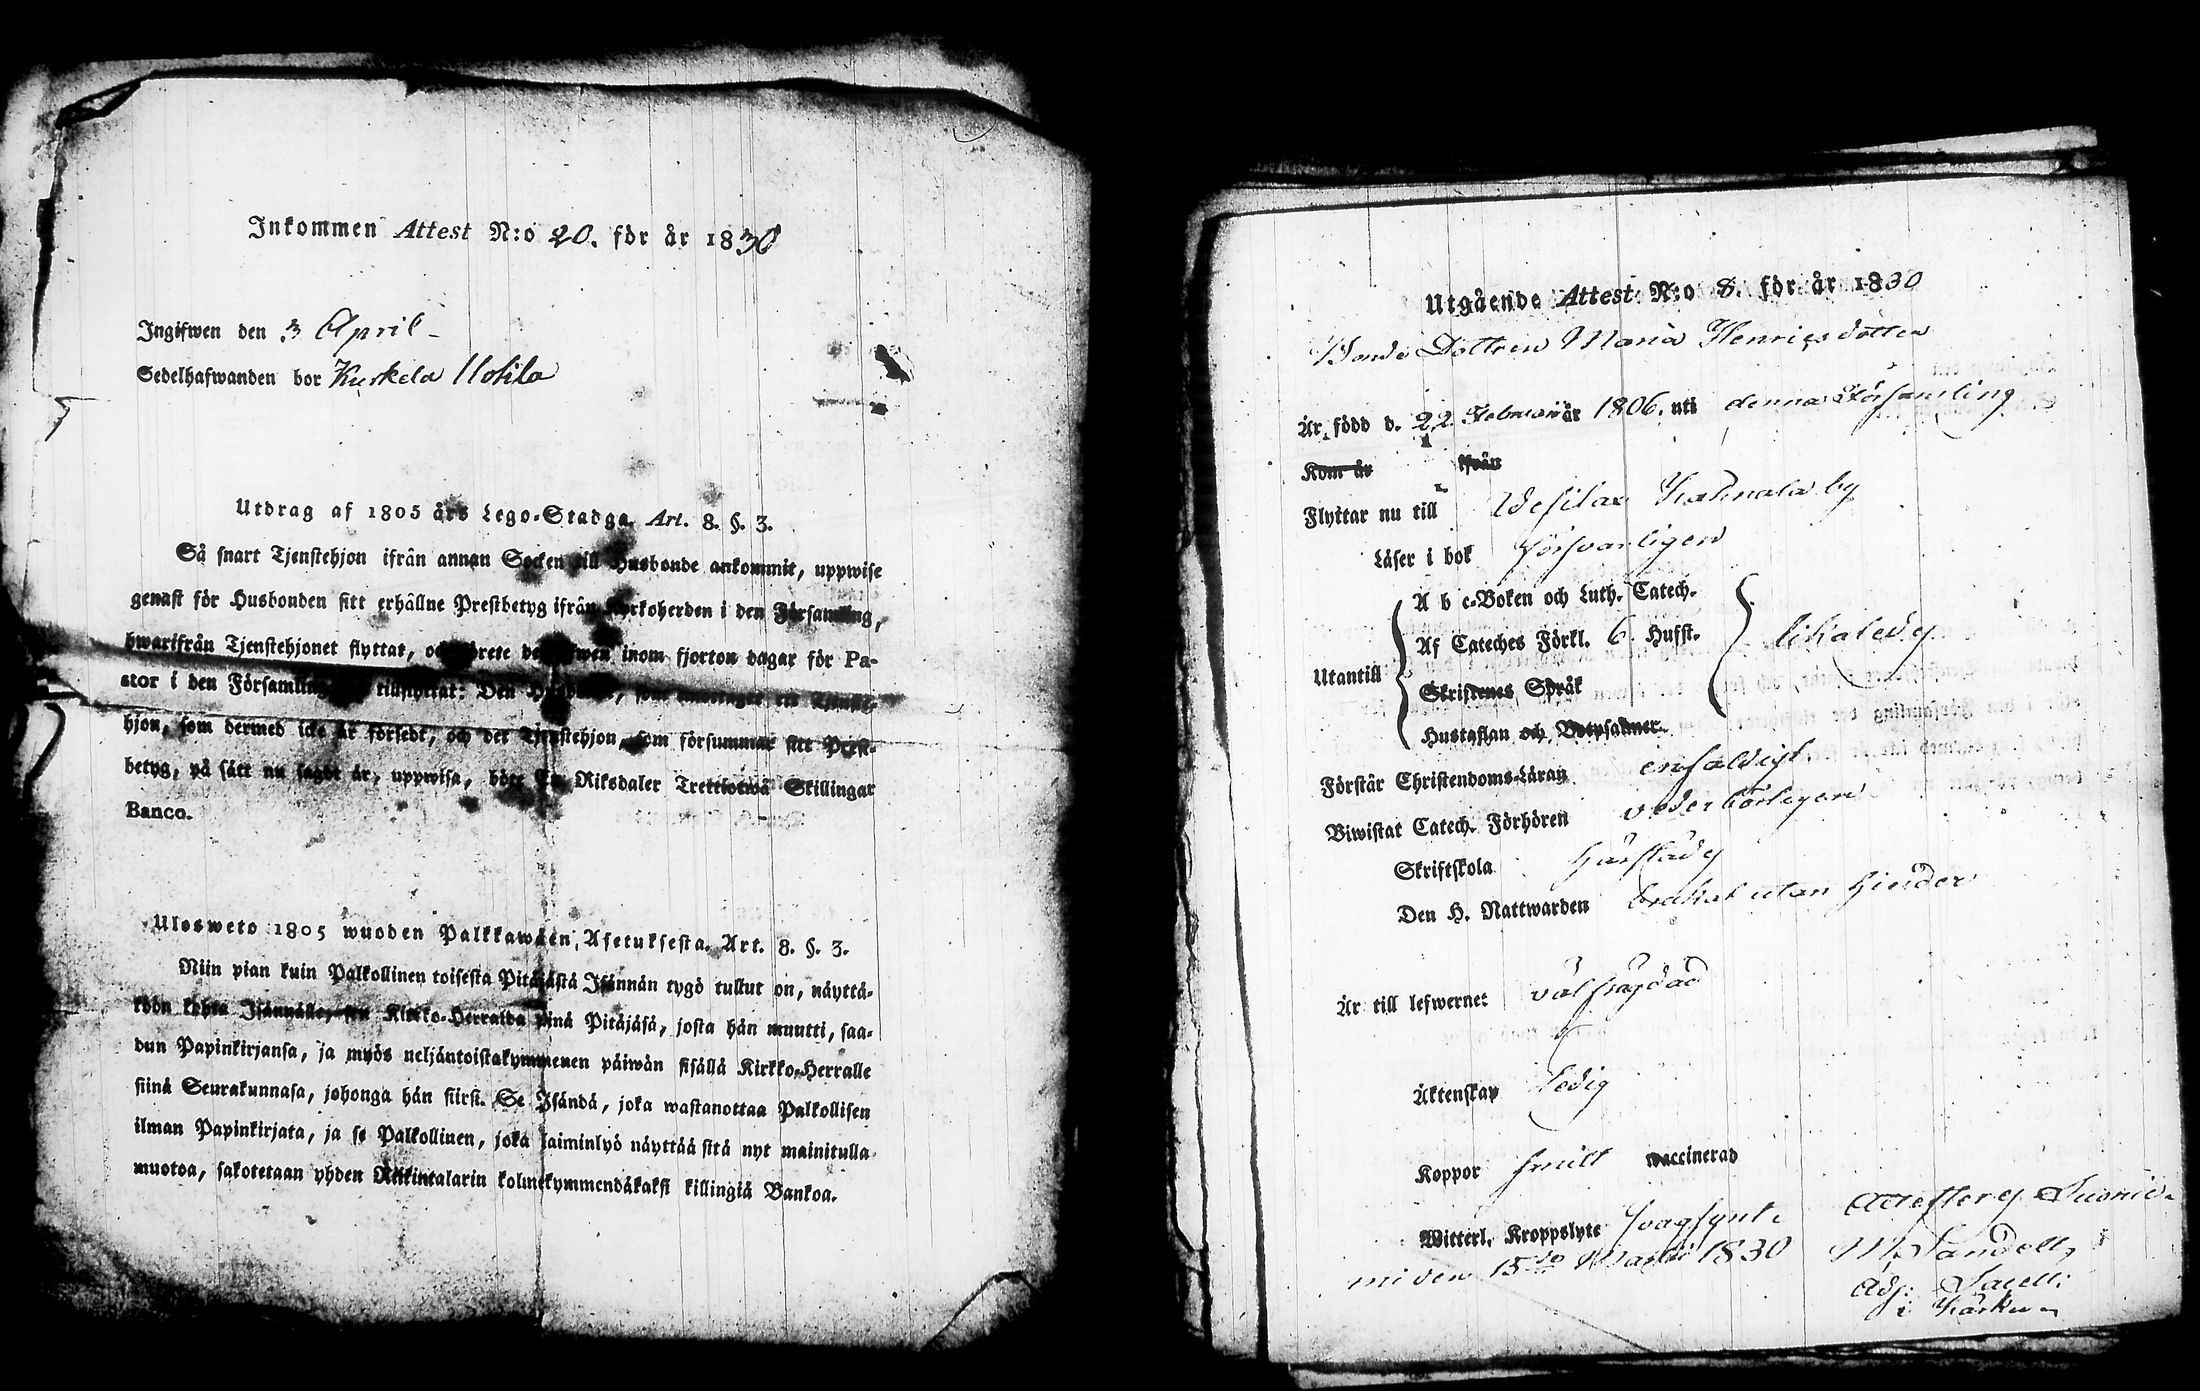 Inkommen Attest N:o 20. för år 1830
Ingifwen den 3 April
Sedelhafwanden bor Kuskela Uotila
Utdrag af 1805 års Lego-Stadga. Art. 8. §. 3.
Så snart Tjenstehjon ifrån annan Socken till Husbonde ankommit, uppwise
genast för Husbonden sitt erhållne Prestbetyg ifrån Kyrkoherden i den Församling,
hwarifrån Tjenstehjonet flyttat, och inom fjorton dagar för Pa-
stor i den Församling tillflyttat: Den
hjon, som dermed icke är försedt, och det Tjenstehjon, som försummar sitt Prest-
betyg, på sätt nu sagdt är, uppwisa, böte En Riksdaler Trettiotwå Skillingar
Banco.
Ulosweto 1805 wuoden Palkkawäen Asetuksesta. Art. 8. §. 3.
Niin pian kuin Palkollinen toisesta Pitäjästä Isännän tygö tullut on, näyttä-
köön kohta Isännälle, sen Kirkko-Herralda siinä Pitäjäsä, josta hän muutti, saa-
dun Papinkirjansa, ja myös neljäntoistakymmenen päiwän sisällä Kirkko-Herralle
siinä Seurakunnasa, johonga hän siirst. Se Isändä, joka wastanottaa Palkollisen
ilman Papinkirjata, ja se Palkollinen, joka laiminlyö näyttää sitä nyt mainitulla
muotoa, sakotetaan yhden Riikintalarin kolmekymmendäkaksi killingiä Bankoa.
Utgående Attest N:o 8. för år 1830
Bonde Dottren Maria Henricsdotter
Är född d. 22 Februari år 1806. uti denna Församling
Kom år ifrån
Flyttar nu till Wesilax by
Läser i bok försvarligen
A b c-Boken och Luth. Catech.
Af Cateches Förkl. 6 Hufst.
Utantill likaledes
Skriftenes Språk
Hustaflan och Botpsalmer.
Förstår Christendoms-Läran enfaldigt.
Biwistat Catech. Förhören vederbörligen
Skriftskola
Den H. Nattwarden brukat utan hinder
Är till lefwernet välfrägdad
Äktenskap Ledig
Koppor vaccinerad
Witterl. Kroppslyte svagsynt.
den 15de Martii 1830 Sandell,
Adj. Sacell.
i